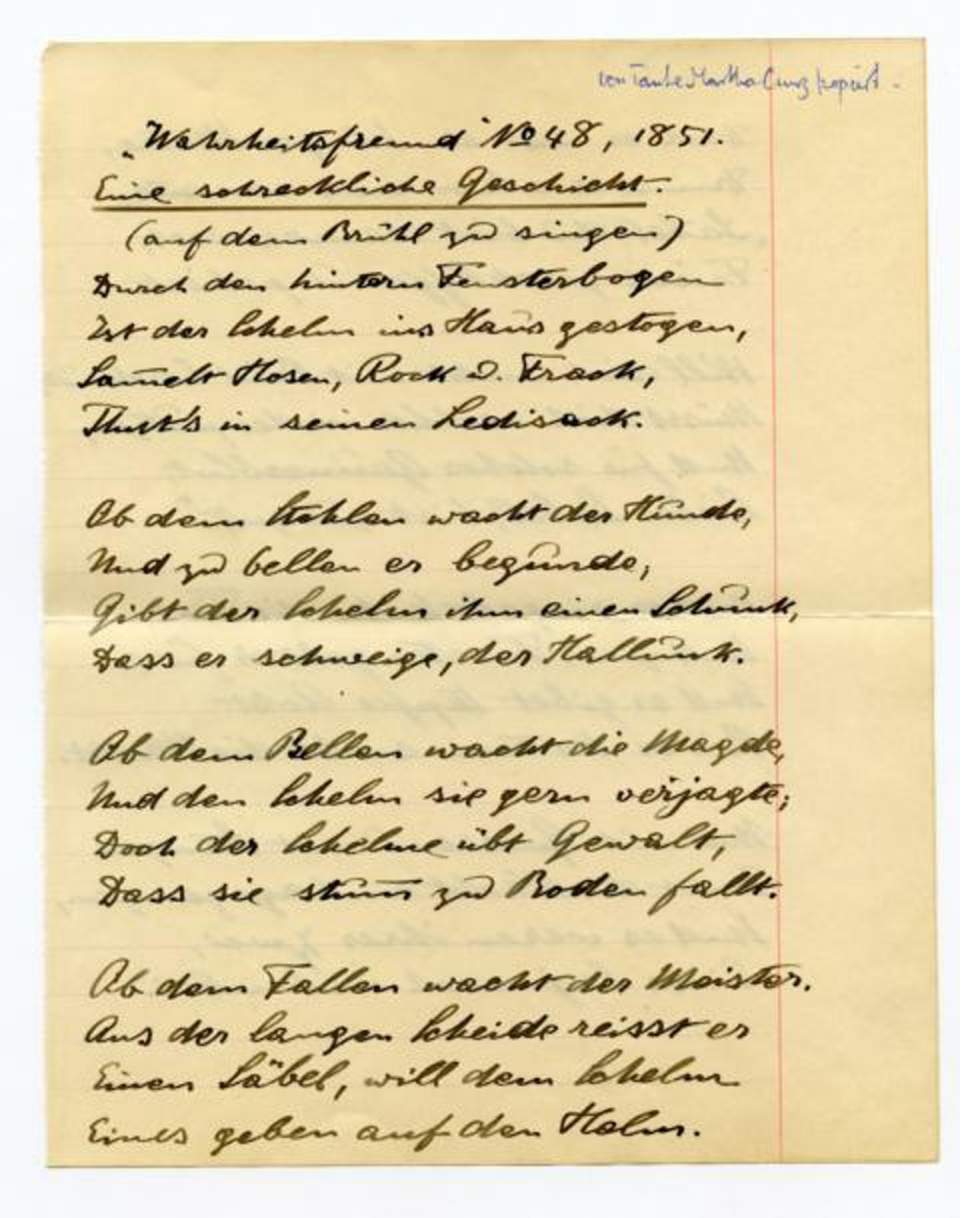 von Tante Martha Cunz kopiert.
„Wahrheitsfreund" No 48, 1851.
Eine schreckliche Geschicht.
(auf dem Brühl zu singen)
Durch den hintern Fensterbogen
Ist der Schelm ins Haus gestogen,
Sam̄elt Hosen, Rock u. Frack,
Thut's in seinen Ledisack.
Ob dem Stehlen wacht der Hunde,
Und zu bellen er begunde;
Gibt der Schelm ihm einen Schunk,
Dass er schweige, der Hallunk.
Ob dem Bellen wacht die Magde,
Und den Schelm sie gern verjagte;
Doch der Schelme übt Gewalt,
Dass sie stum̄ zu Boden fallt.
Ob dem Fallen wacht der Meister.
Aus der langen Scheide reisst er
Einen Säbel, will dem Schelm
Eines geben auf den Helm.